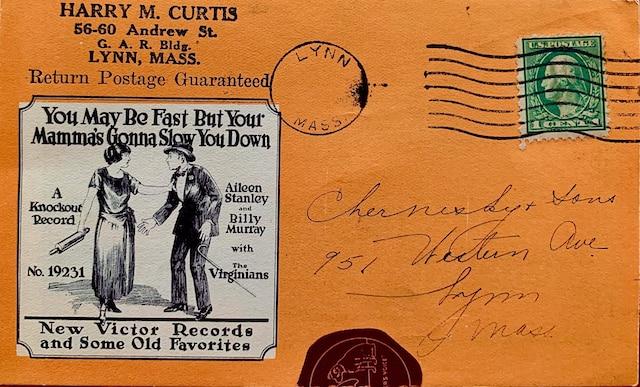 HARRY M. CURTIS
56-60 Andrew St.
G. A. R. Bldg.
LYNN, MASS.
Return Postage Guaranteed
LYNN
MASS.
U.S. POSTAGE
You May Be Fast But Your
Mamma's Gonna Slow You Down
A
Knockout
Record
No. 19231
Aileen
Stanley
and
Billy
Murray
with
The
Virginians
New Victor Records
and Some Old Favorites
& Sons
951 Western Ave.
Lynn
Mass.